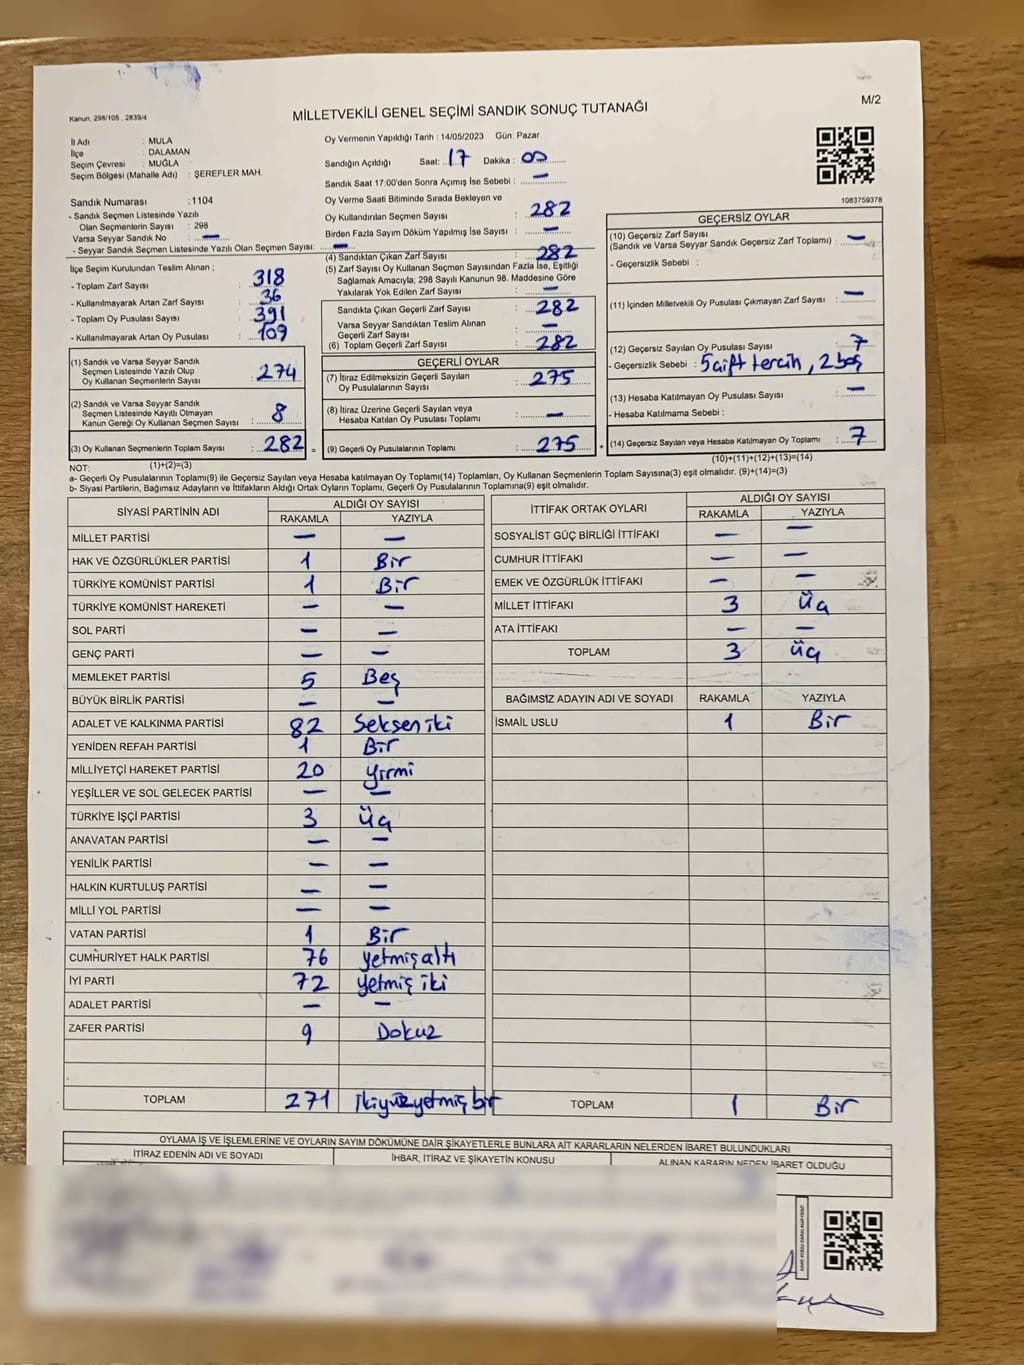 Kanun, 298/105 , 2839/4
MİLLETVEKİLİ GENEL SEÇİMİ SANDIK SONUÇ TUTANAĞI
M/2
İl Adı : MULA
İlçe : DALAMAN
Seçim Çevresi : MUĞLA
Seçim Bölgesi (Mahalle Adı) : ŞEREFLER MAH.
Sandık Numarası : 1104
- Sandık Seçmen Listesinde Yazılı
Olan Seçmenlerin Sayısı : 298
Varsa Seyyar Sandık No : —
- Seyyar Sandık Seçmen Listesinde Yazılı Olan Seçmen Sayısı: —
İlçe Seçim Kurulundan Teslim Alınan ;
- Toplam Zarf Sayısı : 318
- Kullanılmayarak Artan Zarf Sayısı : 36
- Toplam Oy Pusulası Sayısı : 391
- Kullanılmayarak Artan Oy Pusulası : 109
(1) Sandık ve Varsa Seyyar Sandık
Seçmen Listesinde Yazılı Olup
Oy Kullanan Seçmenlerin Sayısı : 274
(2) Sandık ve Varsa Seyyar Sandık
Seçmen Listesinde Kayıtlı Olmayan
Kanun Gereği Oy Kullanan Seçmen Sayısı : 8
(3) Oy Kullanan Seçmenlerin Toplam Sayısı : 282
(1)+(2)=(3)
Oy Vermenin Yapıldığı Tarih : 14/05/2023 Gün: Pazar
Sandığın Açıldığı Saat: 17 Dakika : 00
Sandık Saat 17:00'den Sonra Açılmış İse Sebebi : —
Oy Verme Saati Bitiminde Sırada Bekleyen ve
Oy Kullandırılan Seçmen Sayısı : 282
Birden Fazla Sayım Döküm Yapılmış İse Sayısı : —
(4) Sandıktan Çıkan Zarf Sayısı : 282
(5) Zarf Sayısı Oy Kullanan Seçmen Sayısından Fazla İse, Eşitliği
Sağlamak Amacıyla; 298 Sayılı Kanunun 98. Maddesine Göre
Yakılarak Yok Edilen Zarf Sayısı : —
Sandıkta Çıkan Geçerli Zarf Sayısı : 282
Varsa Seyyar Sandıktan Teslim Alınan
Geçerli Zarf Sayısı : —
(6) Toplam Geçerli Zarf Sayısı : 282
GEÇERLİ OYLAR
(7) İtiraz Edilmeksizin Geçerli Sayılan
Oy Pusulalarının Sayısı : 275
(8) İtiraz Üzerine Geçerli Sayılan veya
Hesaba Katılan Oy Pusulası Toplamı : —
= (9) Geçerli Oy Pusulalarının Toplamı : 275 +
1083759378
GEÇERSİZ OYLAR
(10) Geçersiz Zarf Sayısı : —
(Sandık ve Varsa Seyyar Sandık Geçersiz Zarf Toplamı)
- Geçersizlik Sebebi :
(11) İçinden Milletvekili Oy Pusulası Çıkmayan Zarf Sayısı : —
(12) Geçersiz Sayılan Oy Pusulası Sayısı : 7
- Geçersizlik Sebebi : 5 çift tercih, 2 boş
(13) Hesaba Katılmayan Oy Pusulası Sayısı : —
- Hesaba Katılmama Sebebi :
(14) Geçersiz Sayılan veya Hesaba Katılmayan Oy Toplamı : 7
(10)+(11)+(12)+(13)=(14)
NOT:
a- Geçerli Oy Pusulalarının Toplamı(9) ile Geçersiz Sayılan veya Hesaba katılmayan Oy Toplamı(14) Toplamları, Oy Kullanan Seçmenlerin Toplam Sayısına(3) eşit olmalıdır. (9)+(14)=(3)
b- Siyasi Partilerin, Bağımsız Adayların ve İttifakların Aldığı Ortak Oyların Toplamı, Geçerli Oy Pusulalarının Toplamına(9) eşit olmalıdır.
SİYASİ PARTİNİN ADI ALDIĞI OY SAYISI
RAKAMLA YAZIYLA
MİLLET PARTİSİ — —
HAK VE ÖZGÜRLÜKLER PARTİSİ 1 Bir
TÜRKİYE KOMÜNİST PARTİSİ 1 Bir
TÜRKİYE KOMÜNİST HAREKETİ — —
SOL PARTİ — —
GENÇ PARTİ — —
MEMLEKET PARTİSİ 5 Beş
BÜYÜK BİRLİK PARTİSİ — —
ADALET VE KALKINMA PARTİSİ 82 Seksen iki
YENİDEN REFAH PARTİSİ 1 Bir
MİLLİYETÇİ HAREKET PARTİSİ 20 Yirmi
YEŞİLLER VE SOL GELECEK PARTİSİ — —
TÜRKİYE İŞÇİ PARTİSİ 3 Üç
ANAVATAN PARTİSİ — —
YENİLİK PARTİSİ — —
HALKIN KURTULUŞ PARTİSİ — —
MİLLİ YOL PARTİSİ — —
VATAN PARTİSİ 1 Bir
CUMHURİYET HALK PARTİSİ 76 Yetmiş altı
İYİ PARTİ 72 Yetmiş iki
ADALET PARTİSİ — —
ZAFER PARTİSİ 9 Dokuz
TOPLAM 271 ikiyüzyetmiş bir
İTTİFAK ORTAK OYLARI ALDIĞI OY SAYISI
RAKAMLA YAZIYLA
SOSYALİST GÜÇ BİRLİĞİ İTTİFAKI — —
CUMHUR İTTİFAKI — —
EMEK VE ÖZGÜRLÜK İTTİFAKI — —
MİLLET İTTİFAKI 3 Üç
ATA İTTİFAKI — —
TOPLAM 3 Üç
BAĞIMSIZ ADAYIN ADI VE SOYADI RAKAMLA YAZIYLA
İSMAİL USLU 1 Bir
TOPLAM 1 Bir
OYLAMA İŞ VE İŞLEMLERİNE VE OYLARIN SAYIM DÖKÜMÜNE DAİR ŞİKAYETLERLE BUNLARA AİT KARARLARIN NELERDEN İBARET BULUNDUKLARI
İTİRAZ EDENİN ADI VE SOYADI İHBAR, İTİRAZ VE ŞİKAYETİN KONUSU ALINAN KARARIN NEDEN İBARET OLDUĞU